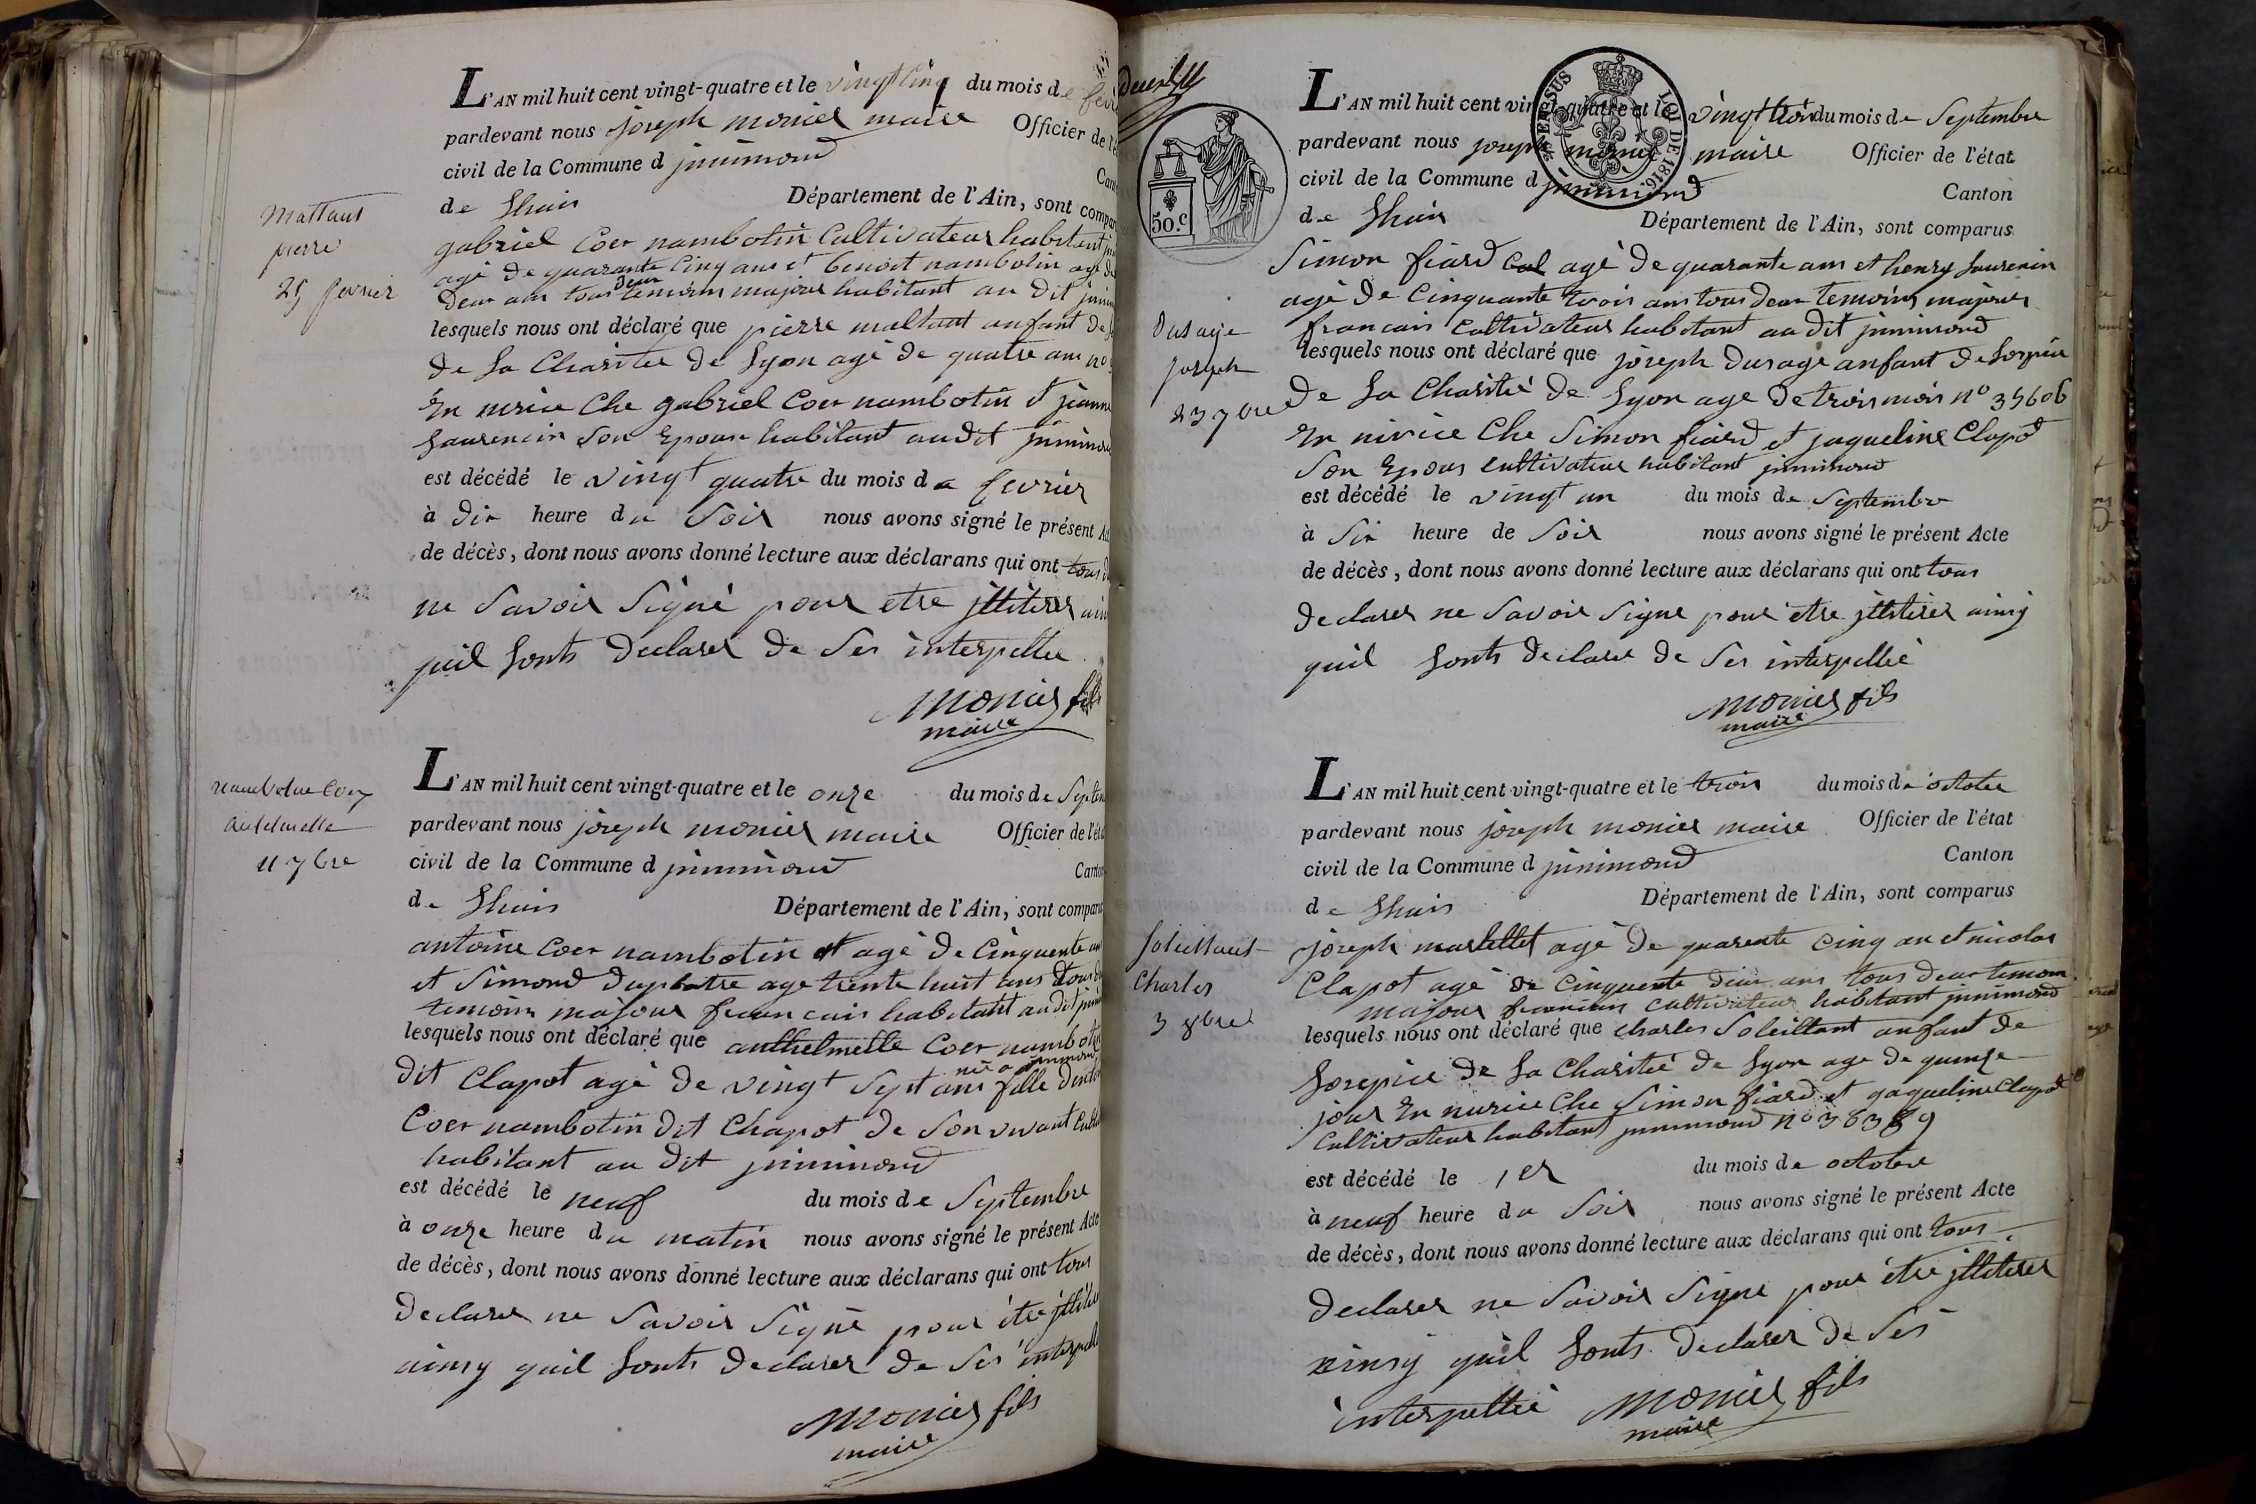 L'AN mil huit cent vingt-quatre et le vingt cinq du mois de
pardevant nous joseph monier maire Officier de
civil de la Commune d jnnimond
de Lhuis Département de l'Ain, sont
gabriel Coer nambotin Cultivateur habitant
agé de quarante Cinq ans et benoit nambotin agé de
deux ans tous deux temoins majour habitant au dit
lesquels nous ont déclaré que pierre mattant anfant de
de La Charitée de Lyon agé de quatre ans no
En nurice Che gabriel Coer nambotin et jeanne
Laurencin Son Epouse habitant audit
est décédé le vingt quatre du mois de fevrier
à dix heure du Soir nous avons signé le présent
de décès, dont nous avons donné lecture aux déclarans qui ont tous
ne Savoir Signé pour etre jlliterer
quil Sonts declarer de Ses interpellee
monier fils
maire
Mattant
pierre
25 fevrier
L'AN mil huit cent vingt-quatre et le onze du mois de
pardevant nous joseph monier maire Officier de
civil de la Commune d jnnimond
de Lhuis Département de l'Ain, sont
antoine Coer nambotin et agé de Cinquente
et Simond duplatre age trente huit ans tous
temoins majour francais habitant au dit
lesquels nous ont déclaré que anthelmette Coer
né a
dit Clapot agé de vingt Sept ans fille
Coer nambotin dit Chapot de Son vivant
habitant au dit jnnimond
est décédé le neuf du mois de Septembre
à onze heure du matin nous avons signé le présent Acte
de décès, dont nous avons donné lecture aux déclarans qui ont tous
declarer ne Savoir Signé pour étre
ainsy quil Sonts declarer de Ses
monier fils
maire
antelmette
11 7bre
50.c
LOI DE 1816.
L'AN mil huit cent vingt-quatre et le vingt trois du mois de Septembre
pardevant nous joseph monier maire Officier de l'état
civil de la Commune d jnnimond Canton
de Lhuis Département de l'Ain, sont comparus
Simon fiard agé de quarante ans et henry Laurencin
agé de Cinquante trois ans tous deux temoins majours
francais Cultivateur habitant au dit jnnimond
lesquels nous ont déclaré que joseph dusage anfant de Lorpice
de La Charitée de Lyon age de trois mois no 35606
En nirice Che Simon fiard et jaqueline Clapot
Son Epous Cultivateur habitant jnnimond
est décédé le vingt un du mois de Septembre
à Six heure de Soir nous avons signé le présent Acte
de décès, dont nous avons donné lecture aux déclarans qui ont tous
declarer ne Savoir Signe pour etre jlliterer ainsy
quil Sonts declare de Ses interpellié
monier fils
maire
Dusage
joseph
23 7bre
L'AN mil huit cent vingt-quatre et le trois du mois de octobre
pardevant nous joseph monier maire Officier de l'état
civil de la Commune d jnnimond Canton
de Lhuis Département de l'Ain, sont comparus
joseph martellet agé de quarente cinq an et nicolas
Clapot agé de Cinquente deux ans tous deux temoin
majour francais Cultivateur habitant jnnimond
lesquels nous ont déclaré que charles Soleillant anfant de
Lorepice de La Charitée de Lyon age de quinze
jour En nurice Che Simon fiard et gaqueline Clapot
Cultivateur habitant jnnimond no 36389
est décédé le 1er du mois de octobre
à neuf heure du Soir nous avons signé le présent Acte
de décès, dont nous avons donné lecture aux déclarans qui ont tous
declarer ne Savoir Signe pour étre jlliterer
ainsy quil Sonts declarer de Ses
interpellié monier fils
maire
Soleillant
Charles
3 8bre